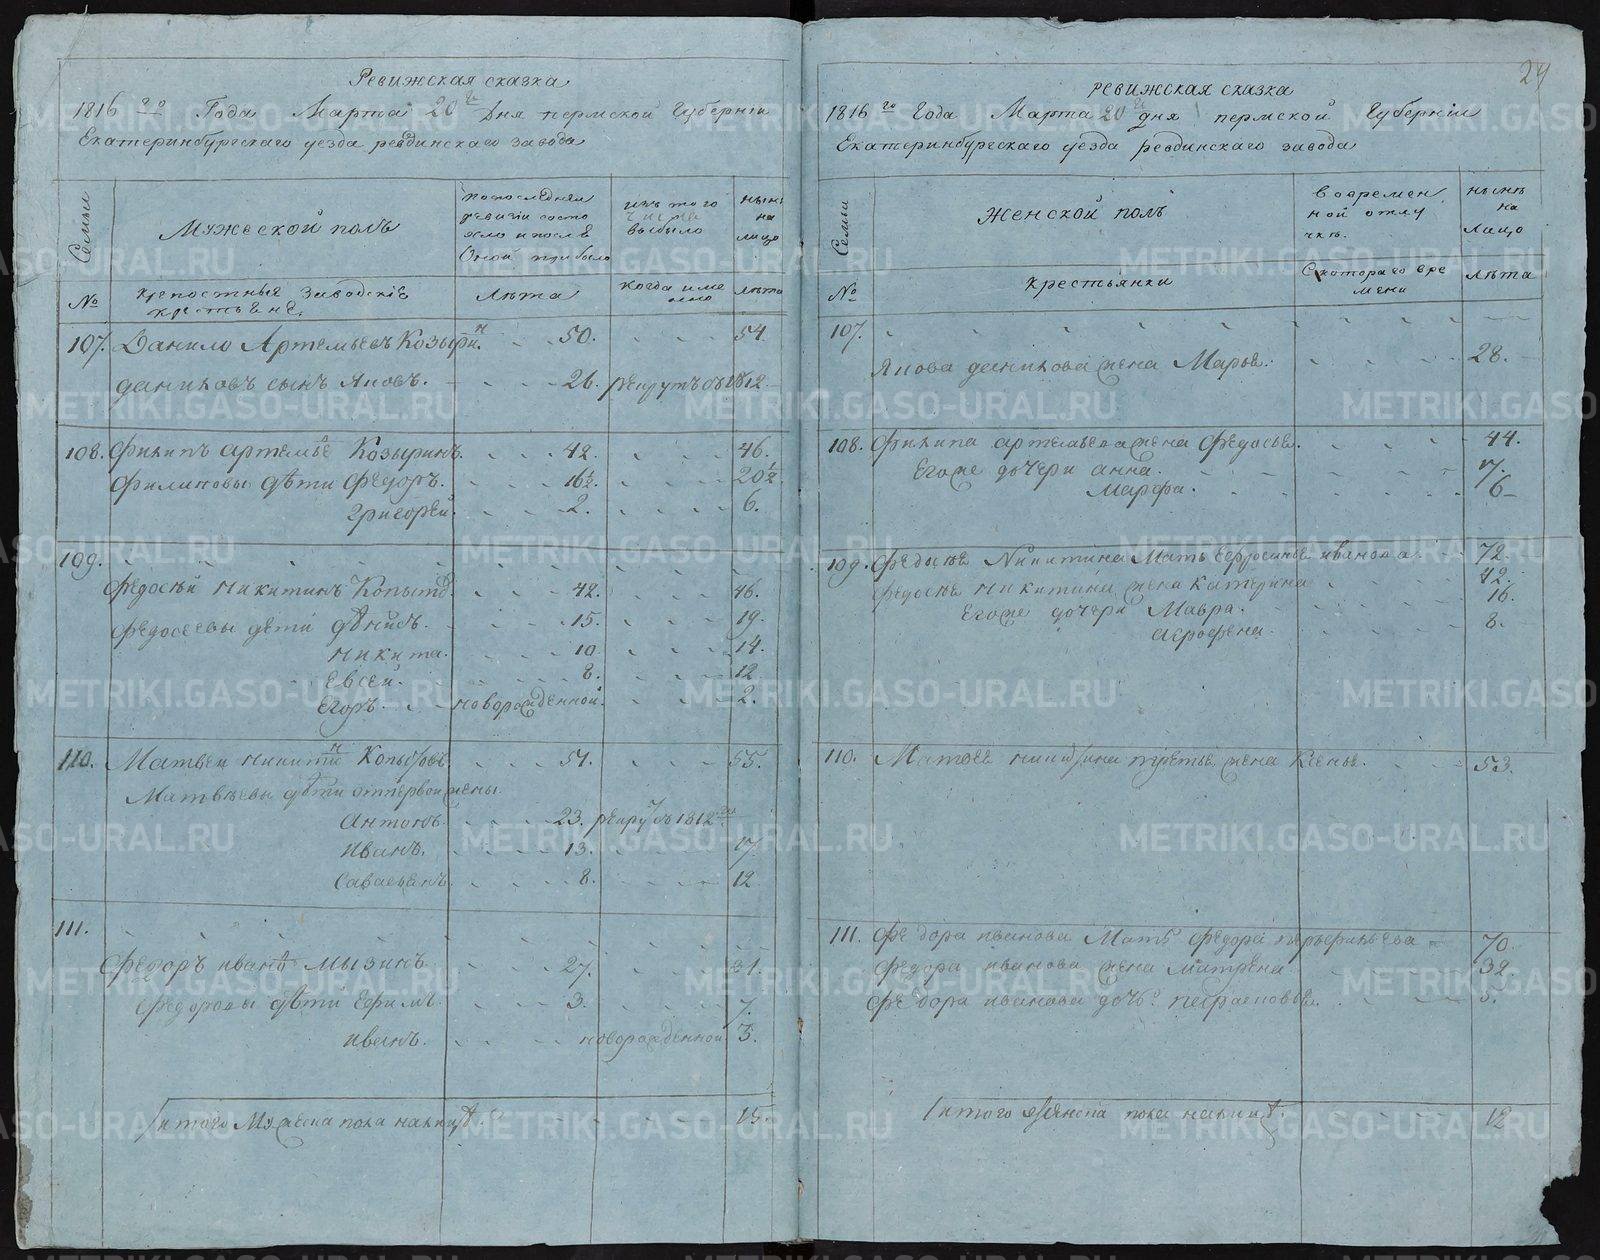 Ревижская сказка
1816 го Года Марта 20 Дня пермской Губернiи
Екатеринбургскаго уезда ревдинскаго завода
Семьи
Мужеской полъ
попоследней ревизiи состояло и после Оной прибыло
изъ того числа выбыло
нынѣ на лицо
№
крепостные Заводскiе крестьяне
Лѣта
Когда именно
лѣта
107. Данило Артемьевъ Козыринъ. 50. 54
даниловъ сынъ Яковъ. 26. рекрутъ въ 1812
108. Филипъ артемьевъ Козыринъ. 42. 46.
Филиповы дѣти Федоръ. 16½. 20½
Григорей. 2. 6.
109.
Федосѣй никитинъ Копытовъ. 42. 46.
Федосеевы дети дѣнисъ. 15. 19.
никита. 10 14.
Евсей. 8. 12
Егоръ. новорожденной. 2.
110. Матвеи никитинъ Копытовъ. 51. 55.
Матвѣевы дѣти отпервой жены.
Антонъ. 23. рекрутъ 1812 го
иванъ. 13. 17.
Савасьянъ. 8. 12
111.
Федоръ ивановъ мызинъ 27. 31.
Федоровы дѣти Ефимъ. 3. 7.
иванъ. новорожденной 3.
итого Мужеска пола налицѣ 15.
24
ревижская сказка
1816 го Года Марта 20 дня пермской Губернiи
Екатеринбургскаго уезда ревдинскаго завода
Семьи
Женской полъ
вовремянной отлучкѣ.
нынѣ на лицо
№
крестьянки
Скотораго времени
лѣта
107.
Якова данилова жена Марья. 28.
108. Филипа артемьева жена Федосья. 44.
Егоже дочери анна. 7.
Марфа. 6
109. Федосѣя Никитина Мать ефросинья иванова. 72.
Федосѣя никитина жена катерина 42.
Егоже дочери Мавра. 16.
агрофена. 8.
110. Матвея никитина третья жена Ксенья. 53.
111. Федора иванова Мать федора 70.
Федора иванова жена матрена 32.
Федора иванова дочь
итого женска пола налицѣ. 12
METRIKI.GASO-URAL.RU